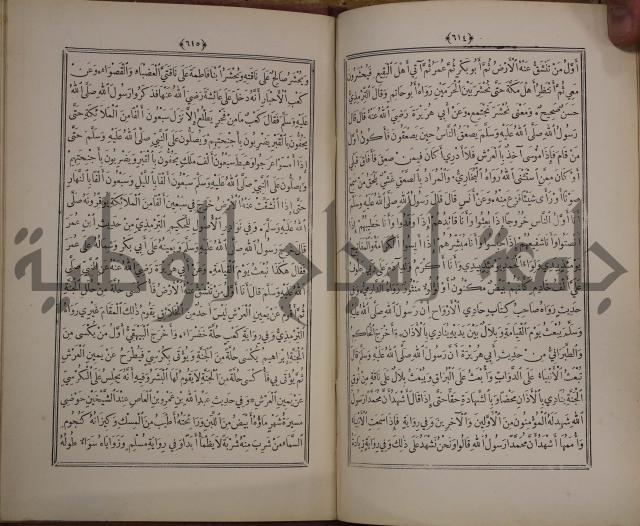 ﴿٦١٤﴾
أَوَّلُ مَنْ تَنْشَقُّ عَنْهُ الْأَرْضُ ثُمَّ أَبُو بَكْرٍ ثُمَّ عُمَرُ ثُمَّ آتِي أَهْلَ الْبَقِيعِ فَيُحْشَرُونَ
مَعِي ثُمَّ أَنْتَظِرُ أَهْلَ مَكَّةَ حَتَّى نُحْشَرَ بَيْنَ الْحَرَمَيْنِ رَوَاهُ أَبُو حَاتِمٍ وَقَالَ التِّرْمِذِيُّ
حَسَنٌ صَحِيحٌ وَمَعْنَى نُحْشَرُ نَجْتَمِعُ وَعَنْ أَبِي هُرَيْرَةَ رَضِيَ اللهُ عَنْهُ قَالَ قَالَ
رَسُولُ اللهِ صَلَّى اللهُ عَلَيْهِ وَسَلَّمَ يَصْعَقُ النَّاسُ حِينَ يَصْعَقُونَ فَأَكُونُ أَوَّلَ
مَنْ قَامَ فَإِذَا مُوسَى آخِذٌ بِالْعَرْشِ فَلَا أَدْرِي أَكَانَ فِيمَنْ صَعِقَ فَأَفَاقَ قَبْلِي
أَوْ كَانَ مِمَّنْ اسْتَثْنَى اللهُ رَوَاهُ الْبُخَارِيُّ وَالْمُرَادُ بِالصَّعْقِ غَشْيٌ يَلْحَقُ مَنْ سَمِعَ
صَوْتًا أَوْ رَأَى شَيْئًا فَزِعَ مِنْهُ وَعَنْ أَنَسٍ قَالَ قَالَ رَسُولُ اللهِ صَلَّى اللهُ عَلَيْهِ وَسَلَّمَ
أَنَا أَوَّلُ النَّاسِ خُرُوجًا إِذَا بُعِثُوا وَأَنَا قَائِدُهُمْ إِذَا وَفَدُوا وَأَنَا خَطِيبُهُمْ إِذَا
أَنْصَتُوا وَأَنَا شَفِيعُهُمْ إِذَا حُبِسُوا وَأَنَا مُبَشِّرُهُمْ إِذَا أَيِسُوا
حَدِيثٌ رَوَاهُ صَاحِبُ كِتَابِ حَادِي الْأَرْوَاحِ أَنَّ رَسُولَ اللهِ صَلَّى اللهُ عَلَيْهِ
وَسَلَّمَ يُبْعَثُ يَوْمَ الْقِيَامَةِ وَبِلَالٌ بَيْنَ يَدَيْهِ يُنَادِي بِالْأَذَانِ وَأَخْرَجَ الْحَاكِمُ
وَالطَّبَرَانِيُّ مِنْ حَدِيثِ أَبِي هُرَيْرَةَ أَنَّ رَسُولَ اللهِ صَلَّى اللهُ عَلَيْهِ وَسَلَّمَ قَالَ
تُبْعَثُ الْأَنْبِيَاءُ عَلَى الدَّوَابِّ وَأُبْعَثُ عَلَى الْبُرَاقِ وَيُبْعَثُ بِلَالٌ عَلَى نَاقَةٍ مِنْ نُوقِ
الْجَنَّةِ يُنَادِي بِالْأَذَانِ مَحْضًا وَبِالشَّهَادَةِ حَقًّا حَتَّى إِذَا قَالَ أَشْهَدُ أَنَّ مُحَمَّدًا رَسُولُ
اللهِ شَهِدَ لَهُ الْمُؤْمِنُونَ مِنَ الْأَوَّلِينَ وَالْآخِرِينَ وَفِي رِوَايَةٍ فَإِذَا سَمِعَتِ الْأَنْبِيَاءُ
وَأُمَمُهَا أَشْهَدُ أَنَّ مُحَمَّدًا رَسُولُ اللهِ قَالُوا وَنَحْنُ نَشْهَدُ عَلَى ذَلِكَ وَفِي رِوَايَةٍ زِيَادَةُ
﴿٦١٥﴾
وَيُحْشَرُ صَالِحٌ عَلَى نَاقَتِهِ وَيُحْشَرُ ابْنَا فَاطِمَةَ عَلَى نَاقَتَيَّ الْعَضْبَاءِ وَالْقَصْوَاءِ وَعَنْ
كَعْبِ الْأَحْبَارِ أَنَّهُ دَخَلَ عَلَى عَائِشَةَ رَضِيَ اللهُ عَنْهَا فَذَكَرُوا رَسُولَ اللهِ صَلَّى اللهُ
عَلَيْهِ وَسَلَّمَ فَقَالَ كَعْبٌ مَا مِنْ فَجْرٍ يَطْلُعُ إِلَّا نَزَلَ سَبْعُونَ أَلْفًا مِنَ الْمَلَائِكَةِ حَتَّى
يَحُفُّونَ بِالْقَبْرِ يَضْرِبُونَ بِأَجْنِحَتِهِمْ وَيُصَلُّونَ عَلَى النَّبِيِّ صَلَّى اللهُ عَلَيْهِ وَسَلَّمَ حَتَّى
إِذَا أَمْسَوْا عَرَجُوا وَهَبَطَ سَبْعُونَ أَلْفَ مَلَكٍ يَحُفُّونَ بِالْقَبْرِ وَيَضْرِبُونَ بِأَجْنِحَتِهِمْ
وَيُصَلُّونَ عَلَى النَّبِيِّ صَلَّى اللهُ عَلَيْهِ وَسَلَّمَ سَبْعُونَ أَلْفًا بِاللَّيْلِ وَسَبْعُونَ أَلْفًا بِالنَّهَارِ
حَتَّى إِذَا انْشَقَّتْ عَنْهُ الْأَرْضُ خَرَجَ فِي سَبْعِينَ أَلْفًا مِنَ الْمَلَائِكَةِ يُوَقِّرُونَهُ صَلَّى
اللهُ عَلَيْهِ وَسَلَّمَ وَفِي نَوَادِرِ الْأُصُولِ لِلْحَكِيمِ التِّرْمِذِيِّ مِنْ حَدِيثِ ابْنِ عُمَرَ
قَالَ خَرَجَ رَسُولُ اللهِ صَلَّى اللهُ عَلَيْهِ وَسَلَّمَ وَيَمِينُهُ عَلَى أَبِي بَكْرٍ وَشِمَالُهُ عَلَى عُمَرَ
فَقَالَ هَكَذَا نُبْعَثُ يَوْمَ الْقِيَامَةِ وَعَنْ أَبِي هُرَيْرَةَ رَضِيَ اللهُ عَنْهُ عَنِ النَّبِيِّ صَلَّى
ثُمَّ أَقُومُ عَنْ يَمِينِ الْعَرْشِ لَيْسَ أَحَدٌ مِنَ الْخَلَائِقِ يَقُومُ ذَلِكَ الْمَقَامَ غَيْرِي رَوَاهُ
التِّرْمِذِيُّ وَفِي رِوَايَةِ كَعْبٍ حُلَّةً خَضْرَاءَ وَأَخْرَجَ الْبَيْهَقِيُّ أَوَّلُ مَنْ يُكْسَى مِنَ
الْجَنَّةِ إِبْرَاهِيمُ يُكْسَى حُلَّةً مِنَ الْجَنَّةِ وَيُؤْتَى بِكُرْسِيٍّ فَيُطْرَحُ عَنْ يَمِينِ الْعَرْشِ
ثُمَّ يُؤْتَى بِي فَأُكْسَى حُلَّةً مِنَ الْجَنَّةِ لَا يَقُومُ لَهَا الْبَشَرُ وَفِيهِ أَنَّهُ يَجْلِسُ عَلَى الْكُرْسِيِّ
عَنْ يَمِينِ الْعَرْشِ وَفِي حَدِيثِ عَبْدِ اللهِ بْنِ عَمْرِو بْنِ الْعَاصِ عِنْدَ الشَّيْخَيْنِ حَوْضِي
مَسِيرَةُ شَهْرٍ مَاؤُهُ أَبْيَضُ مِنَ اللَّبَنِ وَرَائِحَتُهُ أَطْيَبُ مِنَ الْمِسْكِ وَكِيزَانُهُ كَنُجُومِ
السَّمَاءِ مَنْ شَرِبَ مِنْهُ شَرْبَةً لَا يَظْمَأُ أَبَدًا وَفِي رِوَايَةِ مُسْلِمٍ وَزَوَايَاهُ سَوَاءٌ طُولُهُ
جامعة النجاح الوطنية